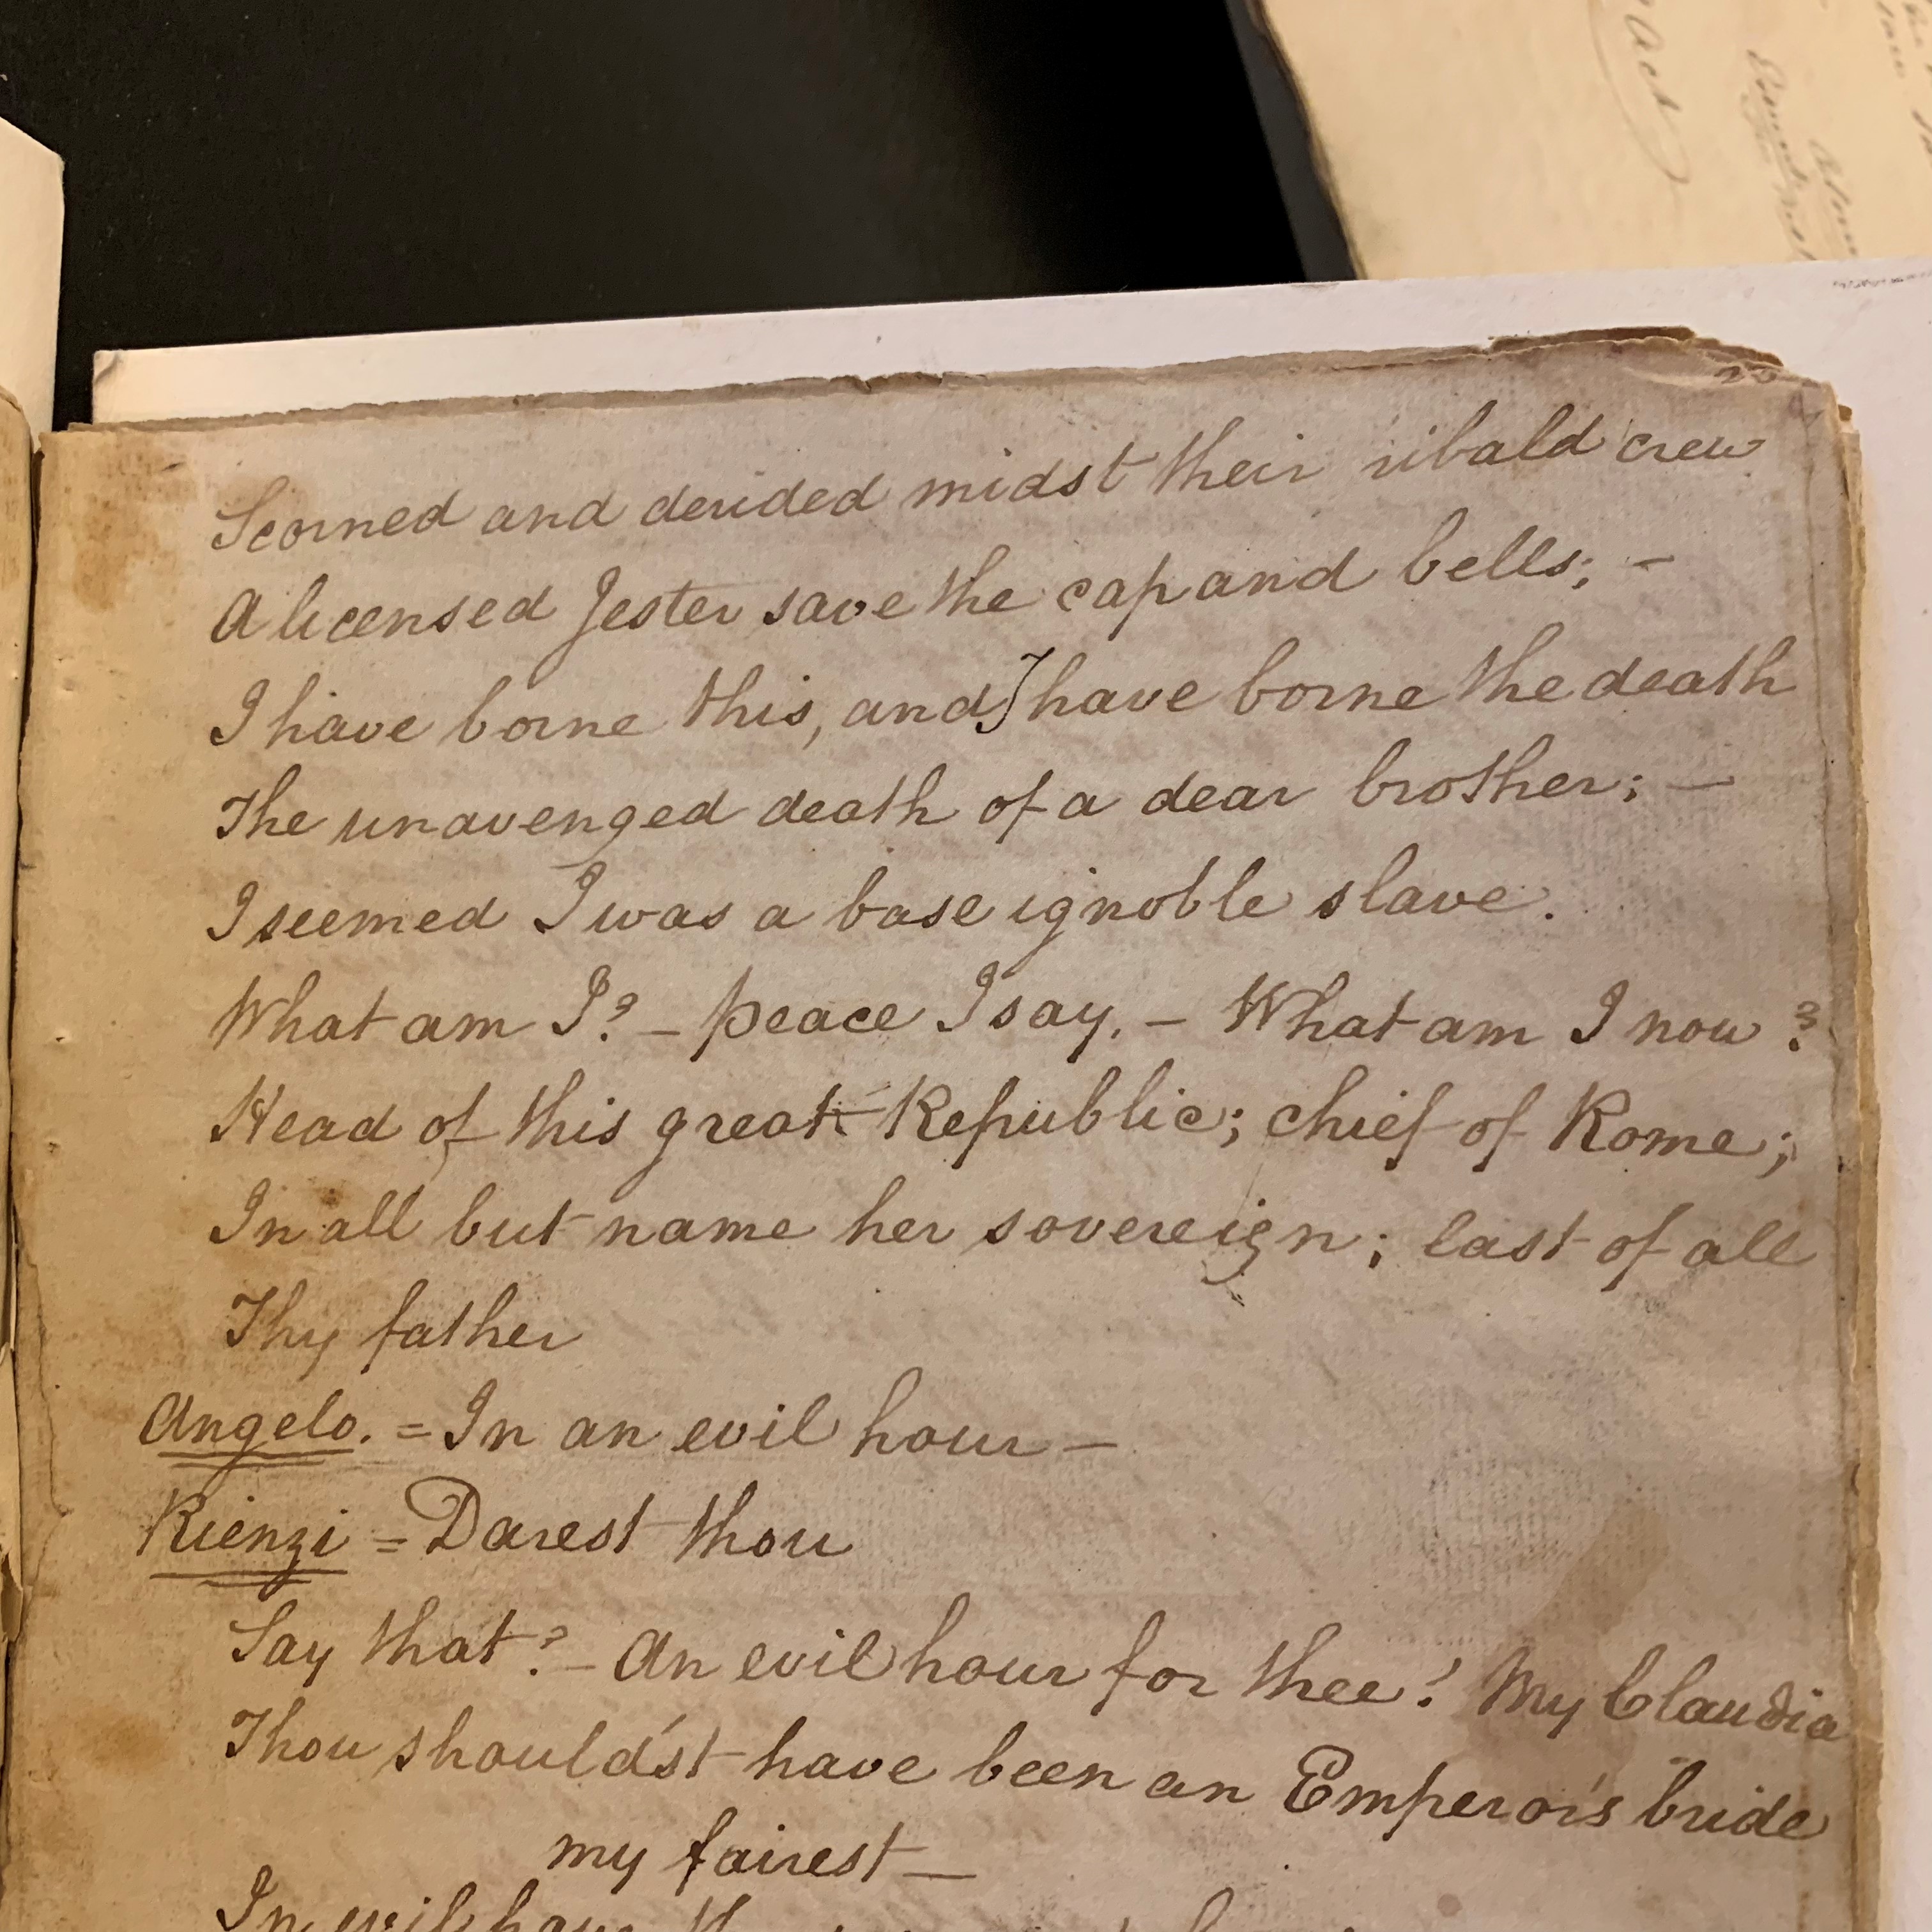 Act
Scorned and derided midst their ribald crew
A licensed Jester save the cap and bells; –
I have borne this, and I have borne the death
The unavenged death of a dear brother; –
I seemed I was a base ignoble slave.
What am I? – peace I say, – What am I now?
Head of this great Republic; chief of Rome;
In all but name her sovereign; last of all
Thy father
Angelo. = In an evil hour –
Rienzi = Darest thou
Say that? – An evil hour for thee! My Claudia
Thou should'st have been an Emperor's bride
my fairest –
In evil hour